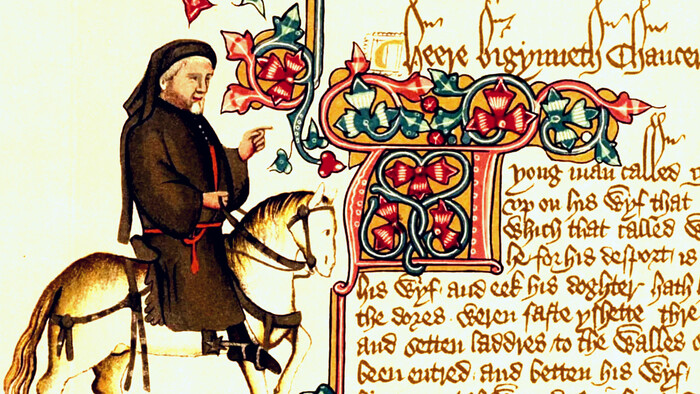 Heere bigynneth Chaucer
A yong man called
vp on his wyf that
which that called
he for his desport is
his wyf and eek his doghter hath
the dores weren faste yshette thre
and setten laddres to the walles
been entred and betten his wyf